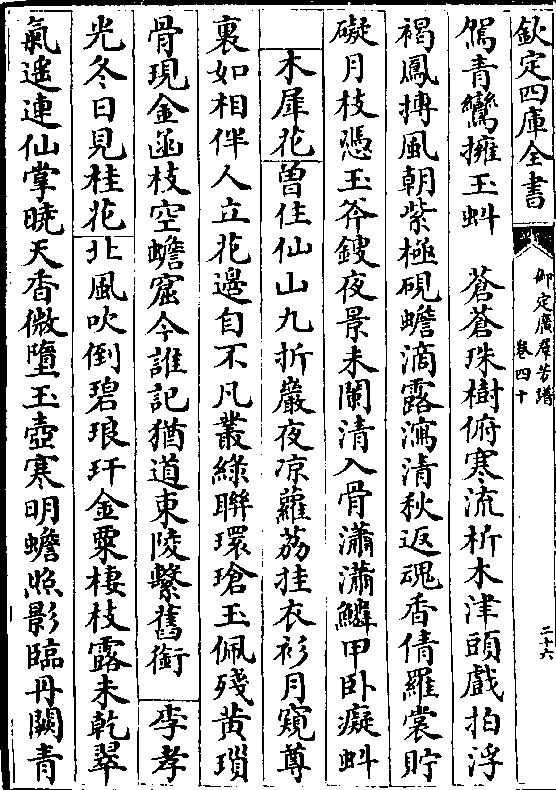 欽定四庫全書
御定廣羣芳譜
卷四十
二十六
鴐青鸞擁玉虯　蒼蒼珠樹俯寒流析木津頭戲拍浮
褐鳳摶風朝紫極硯蟾滴露瀉清秋返魂香倩羅裳貯
礙月枝憑玉斧鎪夜景未闌清入骨瀟瀟鱗甲卧癡虯
木犀花曽住仙山九折巖夜凉蘿荔挂衣衫月窺尊
裏如相伴人立花邊自不凡叢綠聨環瑲玉佩殘黄瑣
骨現金函枝空蟾窟今誰記猶道東陵繫舊銜　李孝
光冬日見桂花北風吹倒碧琅玕金粟棲枝露未乾翠
氣遥連仙掌曉天香微墮玉壺寒明蟾照影臨丹闕青